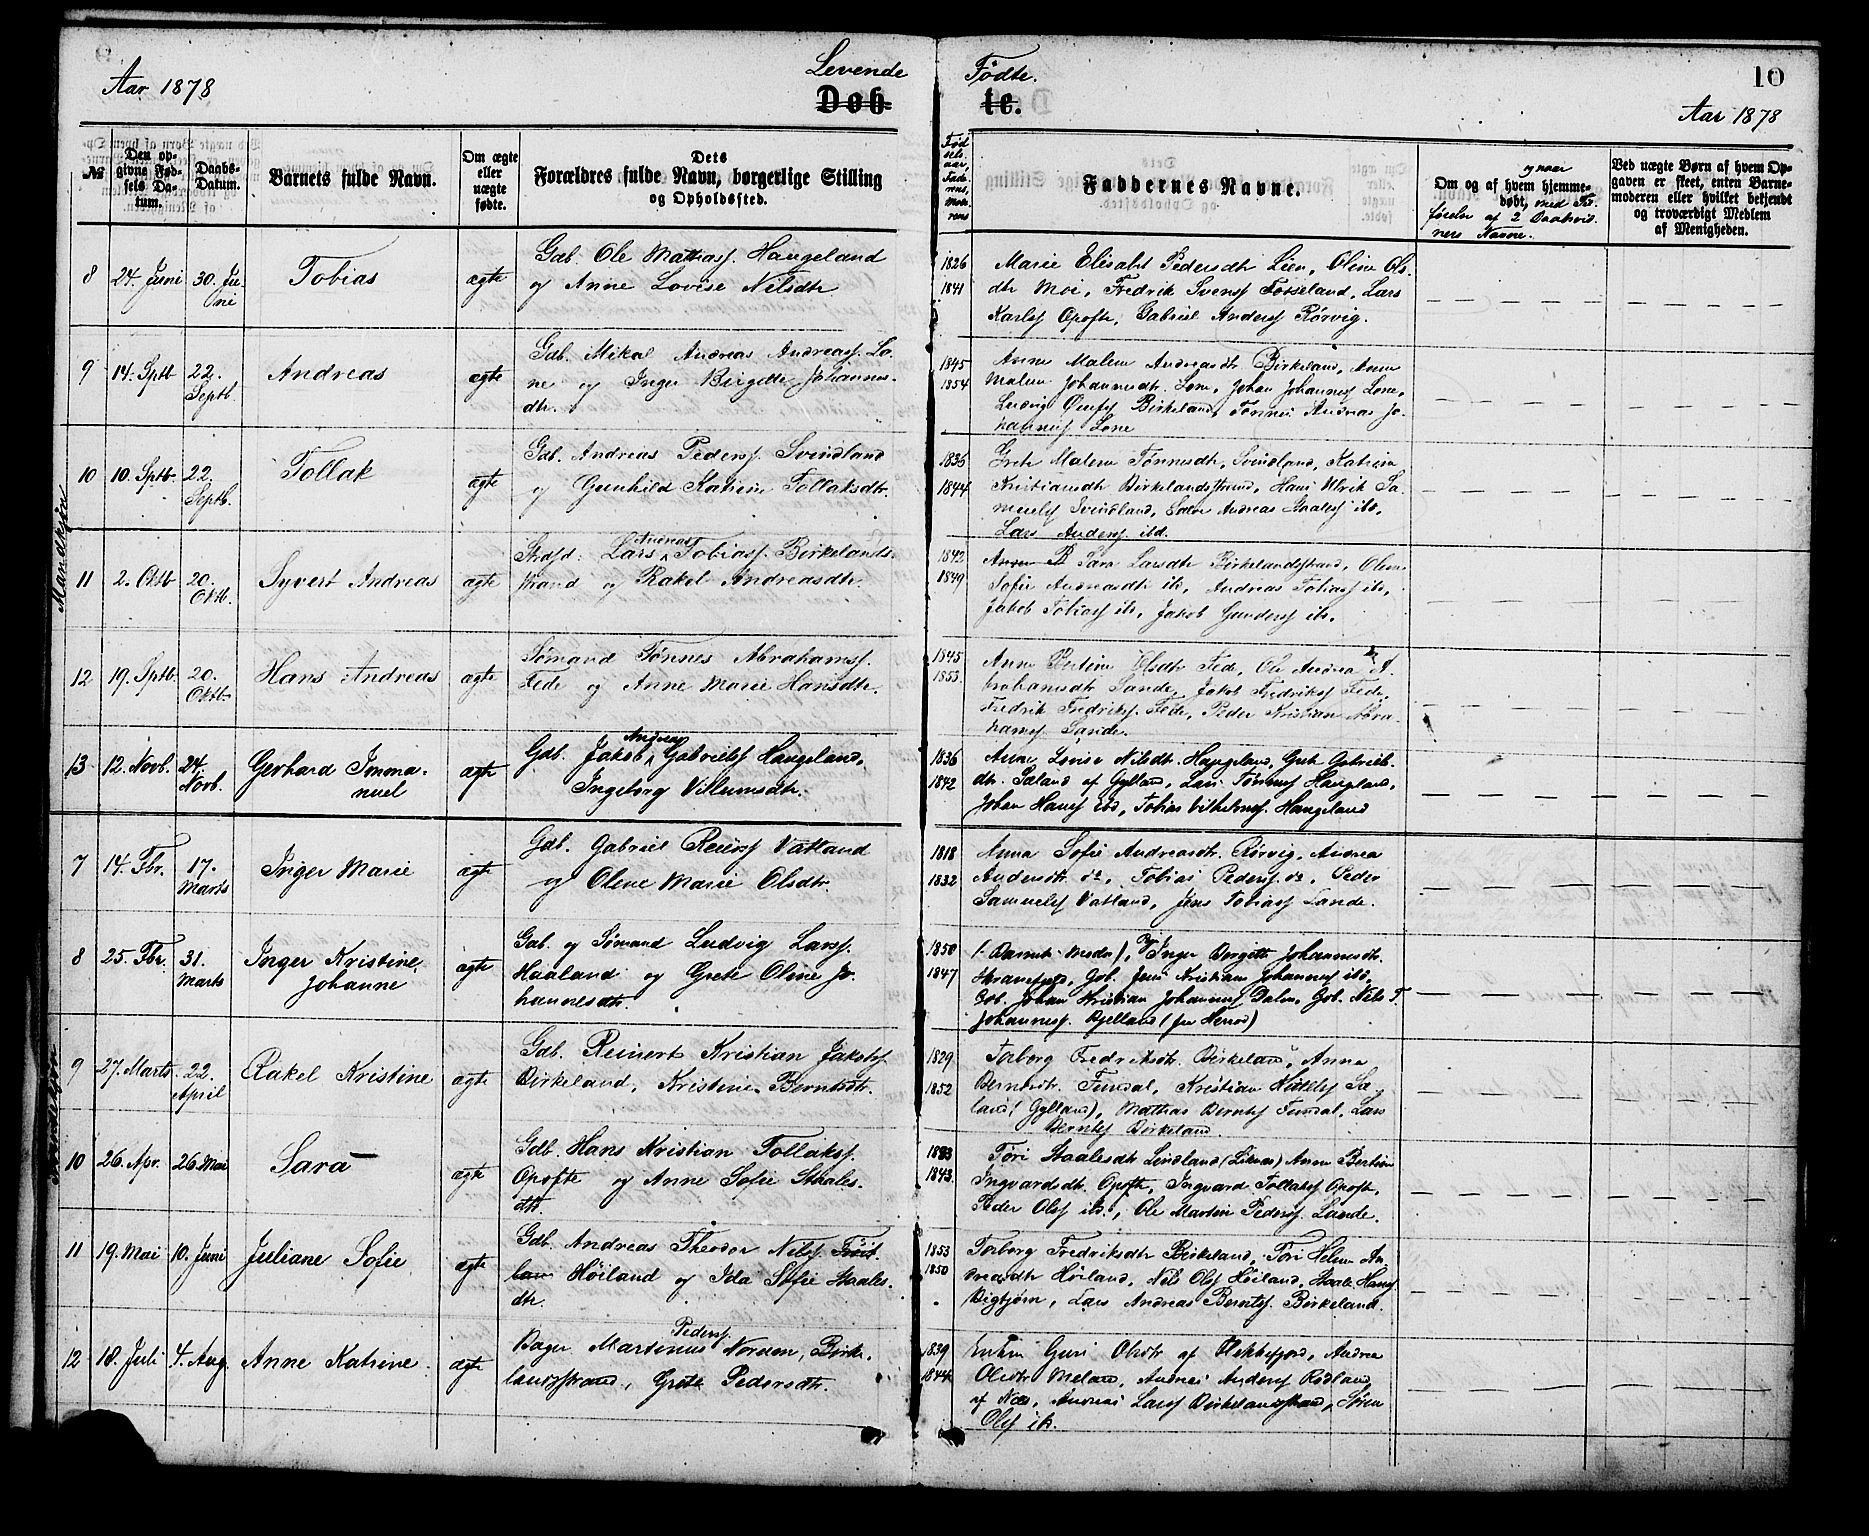 Aar 1878
Levende Fødte.
Døbte.
10
Aar 1878
№
Den opgivne Fødsels Datum.
Daabs-Datum.
Barnets fulde Navn.
Om ægte eller uægte fødte.
Dets
Forældres fulde Navn, borgerlige Stilling
og Opholdssted.
Fødselsaar, Faderens, Moderens
Faddernes Navne.
Om og af hvem hjemmedøbt,
Ved uægte Børn af hvem Opgaven er skeet, enten Barnemoderen eller hvilket betjendt og troværdigt Medlem af Menigheden.
Mandkjøn
8 24. Juni 30. Juni Tobias ægte
Gdb. Ole Mathiass. Haugeland
og Anne Lovise Nilsdtr.
1826
1841
Marie Elisabet Pedersdtr Lien, Oline Olsdtr Moi, Fredrik Svenss Fosseland, Lars
Karlss Opofte, Gabriel Anderss Rørvig.
9 14. Sptb 22. Septb. Andreas ægte
Gdb. Mikal Andreas Andreass. Lone og Inger Birgitte Johannesdtr.
1845
1854
Anne Malene Andreasdtr Birkeland, Anne
Malene Johannesdtr. Lone, Johan Johanness Lone,
Birkeland, Tønnes Andreas Johanness Lone
10 10. Sptb. 22. Septb. Tollak ægte
Gdb. Andreas Pederss. Svindland
og Gunhild Katrine Tollaksdtr.
1836
1844
Grete Malene Tønnesdtr. Svindland, Katrine
Kristiansdtr Birkelandsstrand, Hans Ulrik Samuelss Svindland, Andreas Staaless ibd,
Lars Anderss ibd.
11 2. Oktb 20. Oktb. Syvert Andreas ægte
Strdsd. Lars Andreas Tobiass. Birkelandsstrand og Rakel Andreasdtr.
1842
1849
Sara Larsdtr Birkelandsstrand, Oline
Sofie Andreasdtr ib, Andreas Tobiass ib,
Jakob Tobiass ib, Jakob Gunderss ib.
12 19. Septb. 20. Oktb. Hans Andreas ægte
Sømand Tønnes Abrahamss.
Fede og Anne Marie Hansdtr.
1845
1853
Anne Bertine Olsdtr Fede, Andrea Abrahamsdtr Sande, Jakob Fredrikss Fede,
Fredrik Fredrikss. Fede, Peder Kristian Abrahamss Sande.
13 12. Novb. 24. Novb. Gerhard Immanuel ægte
Gdb. Jakob Andreas Gabrielss Haugeland,
Ingeborg Villumsdtr.
1836
1842
Anne Lovise Nilsdtr. Haugeland, Grete Gabrielsdtr. Sæland af Gylland, Lars Tønness Haugeland,
Johan Hanss Ebd, Tobias Vilhelmss. Haugeland
Kvindekjøn
7 14. Fbr. 17. Marts Inger Marie ægte
Gdb. Gabriel Reierss Vatland
og Oline Marie Olsdtr.
1818
1832
Anna Sofie Andreasdtr. Rørvig, Andrea
Andersdtr. do, Tobias Pederss. do, Peder
Samuelss Vatland, Jens Tobiass Lande.
8 25. Fbr. 31. Marts Inger Kristine Johanne ægte
Gdb. og Sømand Ludvig Larss.
Haaland og Grete Oline Johannesdtr.
1850
1847
(Barnets Moder), Pig. Inger Birgitte Johannesdtr.
Gdb. Jens Kristian Johanness ibd,
Gdb. Johan Kristian Johanness Dalen, Gdb. Nils T.
Johanness. Bjelland (fra Herred)
9 27. Marts. 22. April Rakel Kristine ægte
Gdb. Reinert Kristian Jakobss
Birkeland, Kristine Berntsdtr.
1829
1852
Torborg Fredriksdtr. Birkeland, Anna
Berntsdtr. Fundal, Kristian Sæland (Gylland), Mathias Berntss Fundal, Lars
Berntss Birkeland.
10 26. Apr. 26. Mai Sara ægte
Gdb. Hans Kristian Tollakss.
Opofte og Anne Sofie Staalesdtr.
1843.
Tøri Staalesdtr Lindland (Liknes) Anne Bertine
Ingvardsdtr. Opofte, Ingvard Tollakss Opofte,
Peder Olss ib., Ole Martin Pederss. Lande.
11 19. Mai 10. Juni Juliane Sofie ægte
Gdb. Andreas Theodor Nilss.
Høiland og Ida Sofie Staalesdtr.
1853
1850
Torborg Fredriksdtr Birkeland, Tøri Helene Andreasdtr Høiland, Nils Olss Høiland, Staale Hanss
Bigtjørn, Lars Andreas Berntss. Birkeland.
12 18. Juli 4. Aug. Anne Katrine ægte
Bager Martinius Pederss. Norden, Birkelandsstrand, Grete Pedersdtr.
1839
1844
Enken Guri Olsdtr af Flekkefjord, Andrea
Olsdtr Meland, Andreas Anderss Rødland
af Næs, Andreas Larss Birkelandsstrand, Søren
Olss ib.